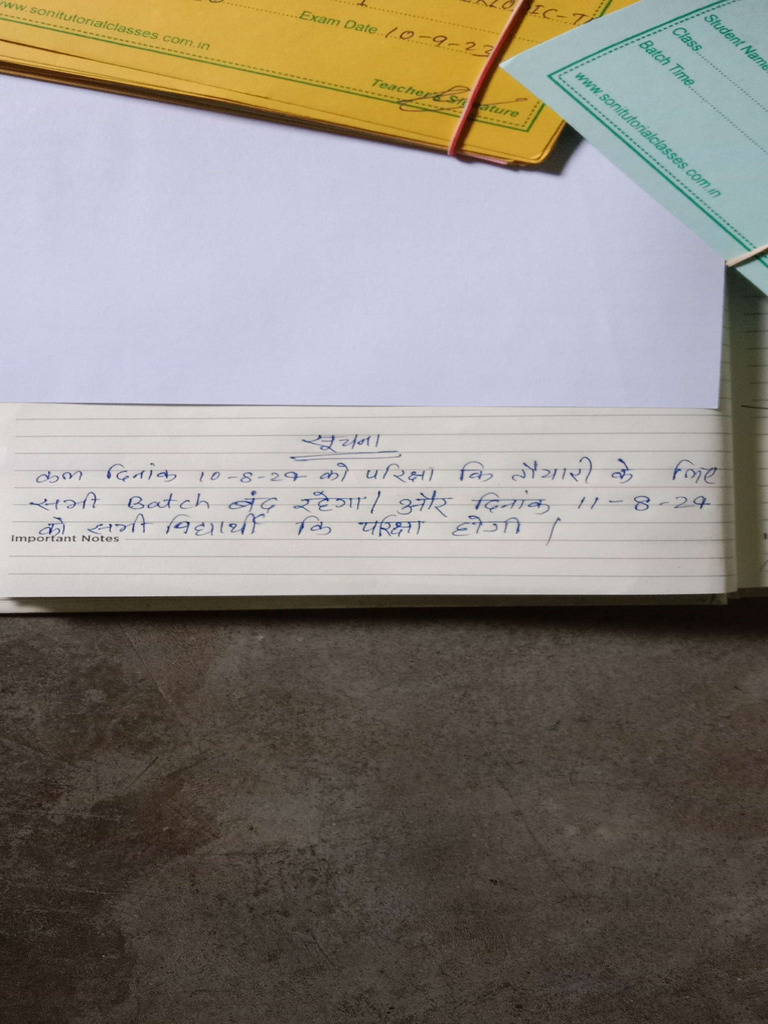 www.sonitutorialclasses.com.in
Exam Date 10-9-23
Teacher's Signature
Student Name
Class
Batch Time
www.sonitutorialclasses.com.in
सूचना
कल दिनांक 10-8-24 को परिक्षा कि तैयारी के लिए
सभी Batch बंद रहेगा। और दिनांक 11-8-24
को सभी विद्यार्थी कि परिक्षा होगी।
Important Notes